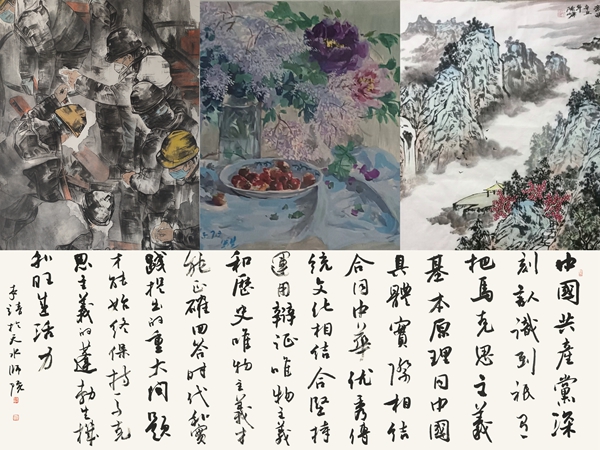 中國共產黨深
刻認識到祇有
把馬克思主義
基本原理同中國
具體實際相结
合同中華优秀傳
统文化相结合堅持
運用辯証唯物主義
和歷史唯物主義才
能正確回答時代和實
踐提出的重大问题
才能始终保持马克
思主義的蓬勃生機
和旺盛活力
於天水师院